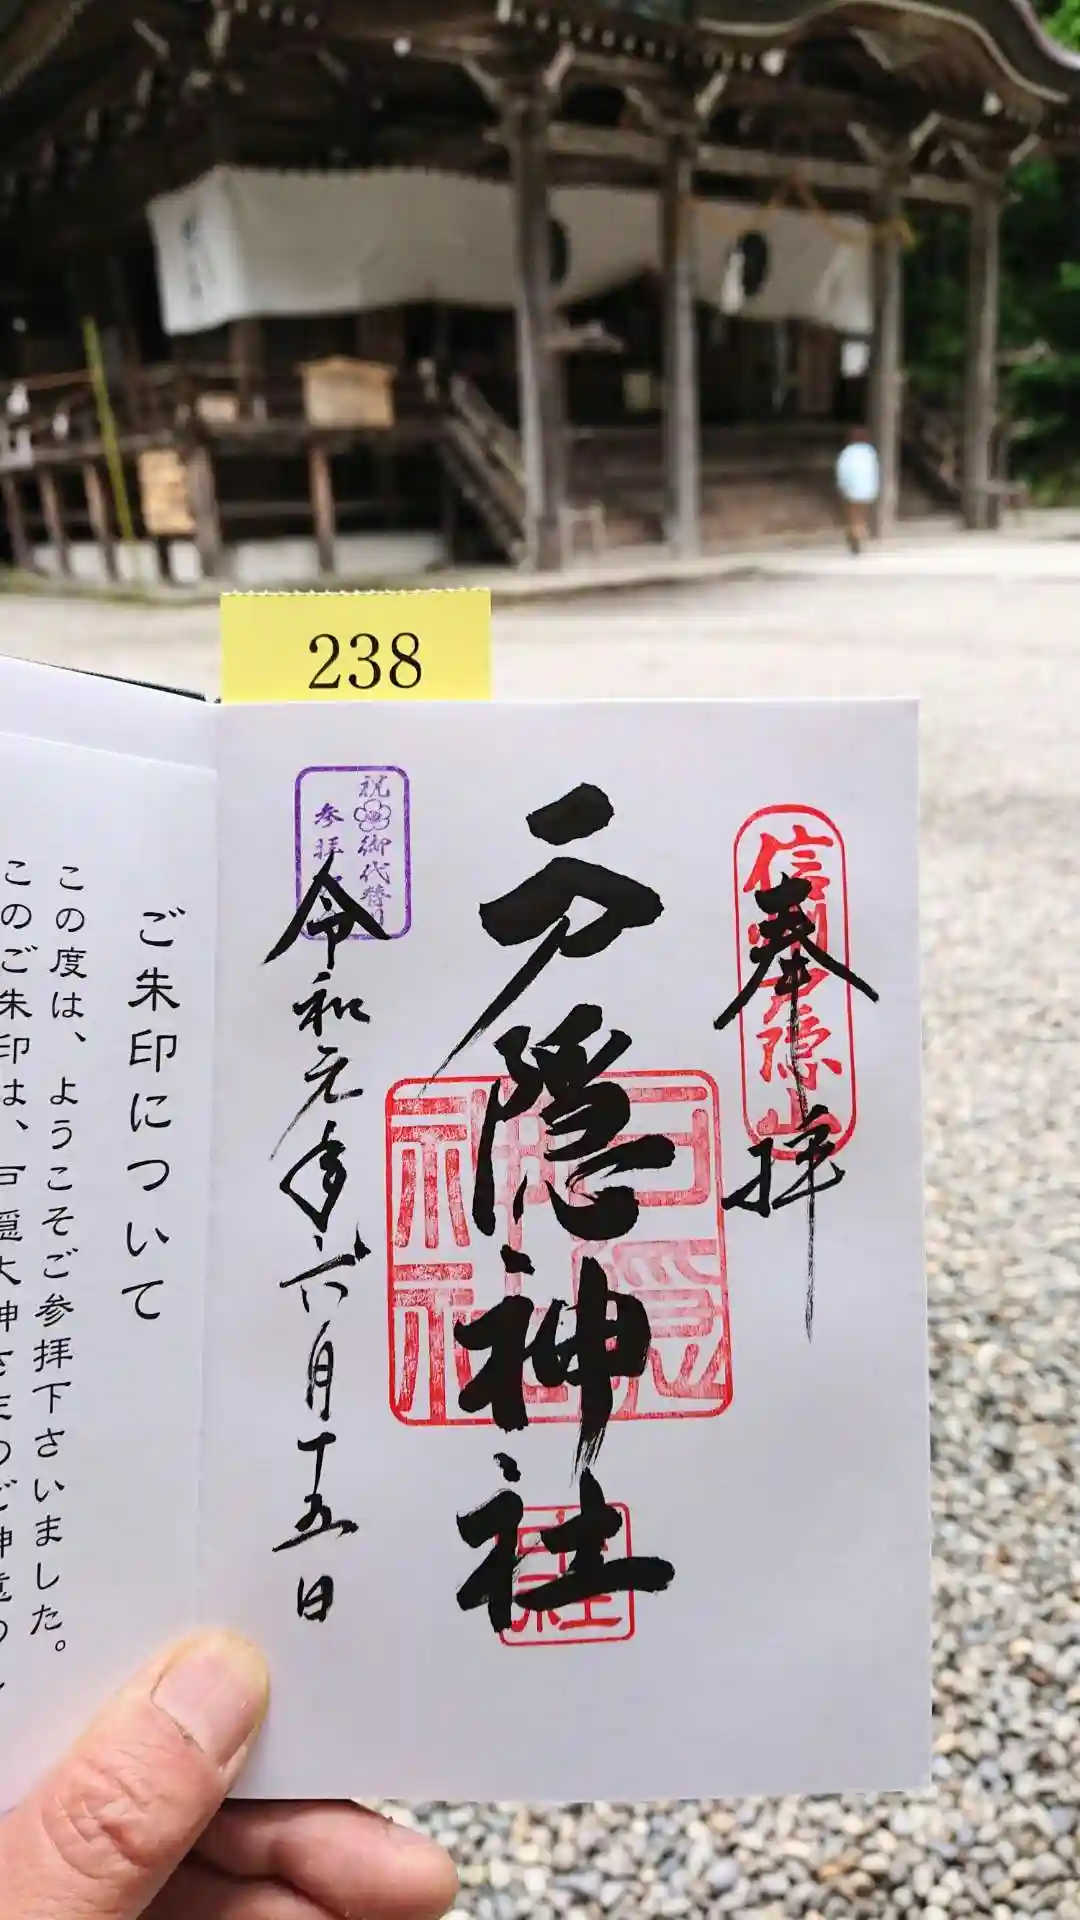 238
信州戸隠山
奉拝
戸隠神社
戸隠神社
令和元年六月十五日
祝 御代替り
参拝
ご朱印について
この度は、ようこそご参拝下さいました。
このご朱印は、戸隠大神さまのご神意の